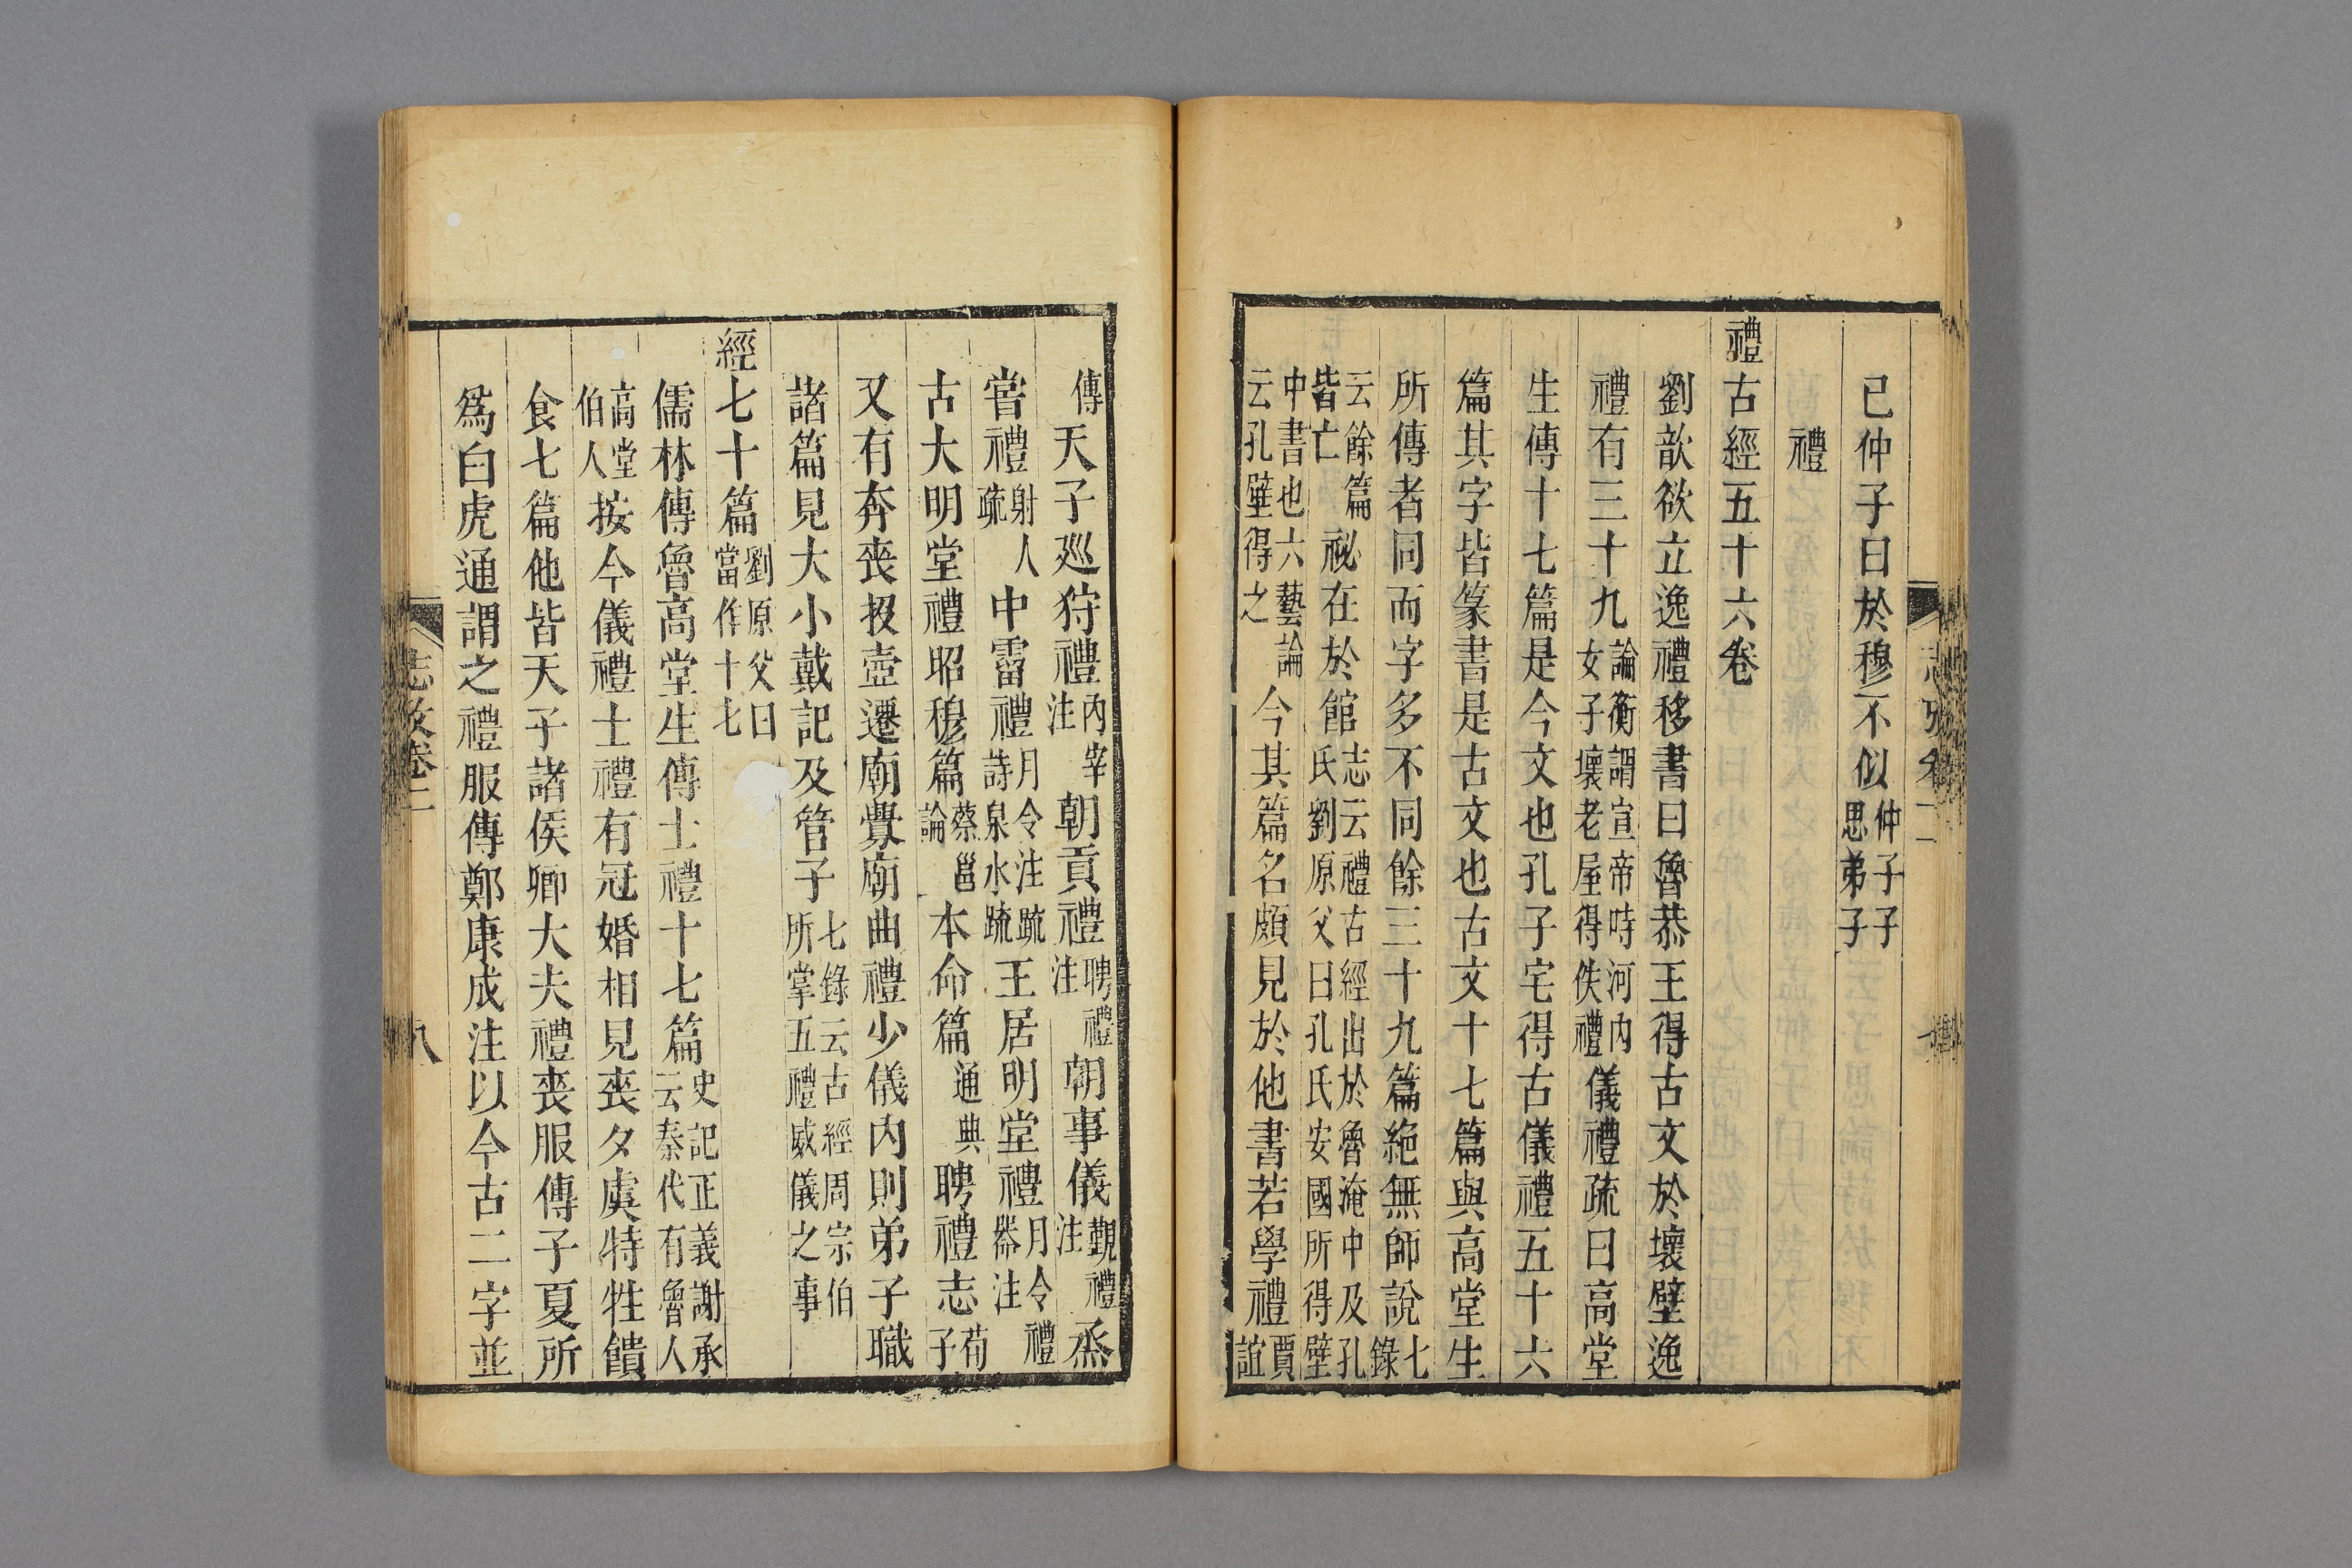 志攷卷二
已仲子曰於穆不似仲子子思弟子
禮
禮古經五十六卷
劉歆欲立逸禮移書曰魯恭王得古文於壞壁逸
禮有三十九論衡謂宣帝時河內女子壞老屋得佚禮儀禮疏曰高堂
生傳十七篇是今文也孔子宅得古儀禮五十六
篇其字皆篆書是古文也古文十七篇與高堂生
所傳者同而字多不同餘三十九篇絶無師說七錄
云餘篇皆亡祕在於館志云禮古經出於魯淹中及孔氏劉原父曰孔氏安國所得壁
中書也六藝論云孔壁得之今其篇名頗見於他書若學禮賈誼
傳天子巡狩禮內宰注朝貢禮聘禮注朝事儀覲禮注烝
嘗禮射人疏中霤禮月令注疏詩泉水疏王居明堂禮月令禮器注
古大明堂禮昭穆篇蔡邕論本命篇通典聘禮志荀子
又有奔喪投壺遷廟釁廟曲禮少儀內則弟子職
諸篇見大小戴記及管子七錄云古經周宗伯所掌五禮威儀之事
經七十篇劉原父曰當作十七
儒林傳魯高堂生傳士禮十七篇史記正義謝承云秦代有魯人
高堂伯人按今儀禮士禮有冠婚相見喪夕虞特牲饋
食七篇他皆天子諸侯卿大夫禮喪服傳子夏所
爲白虎通謂之禮服傳鄭康成注以今古二字並
志攷卷二
八